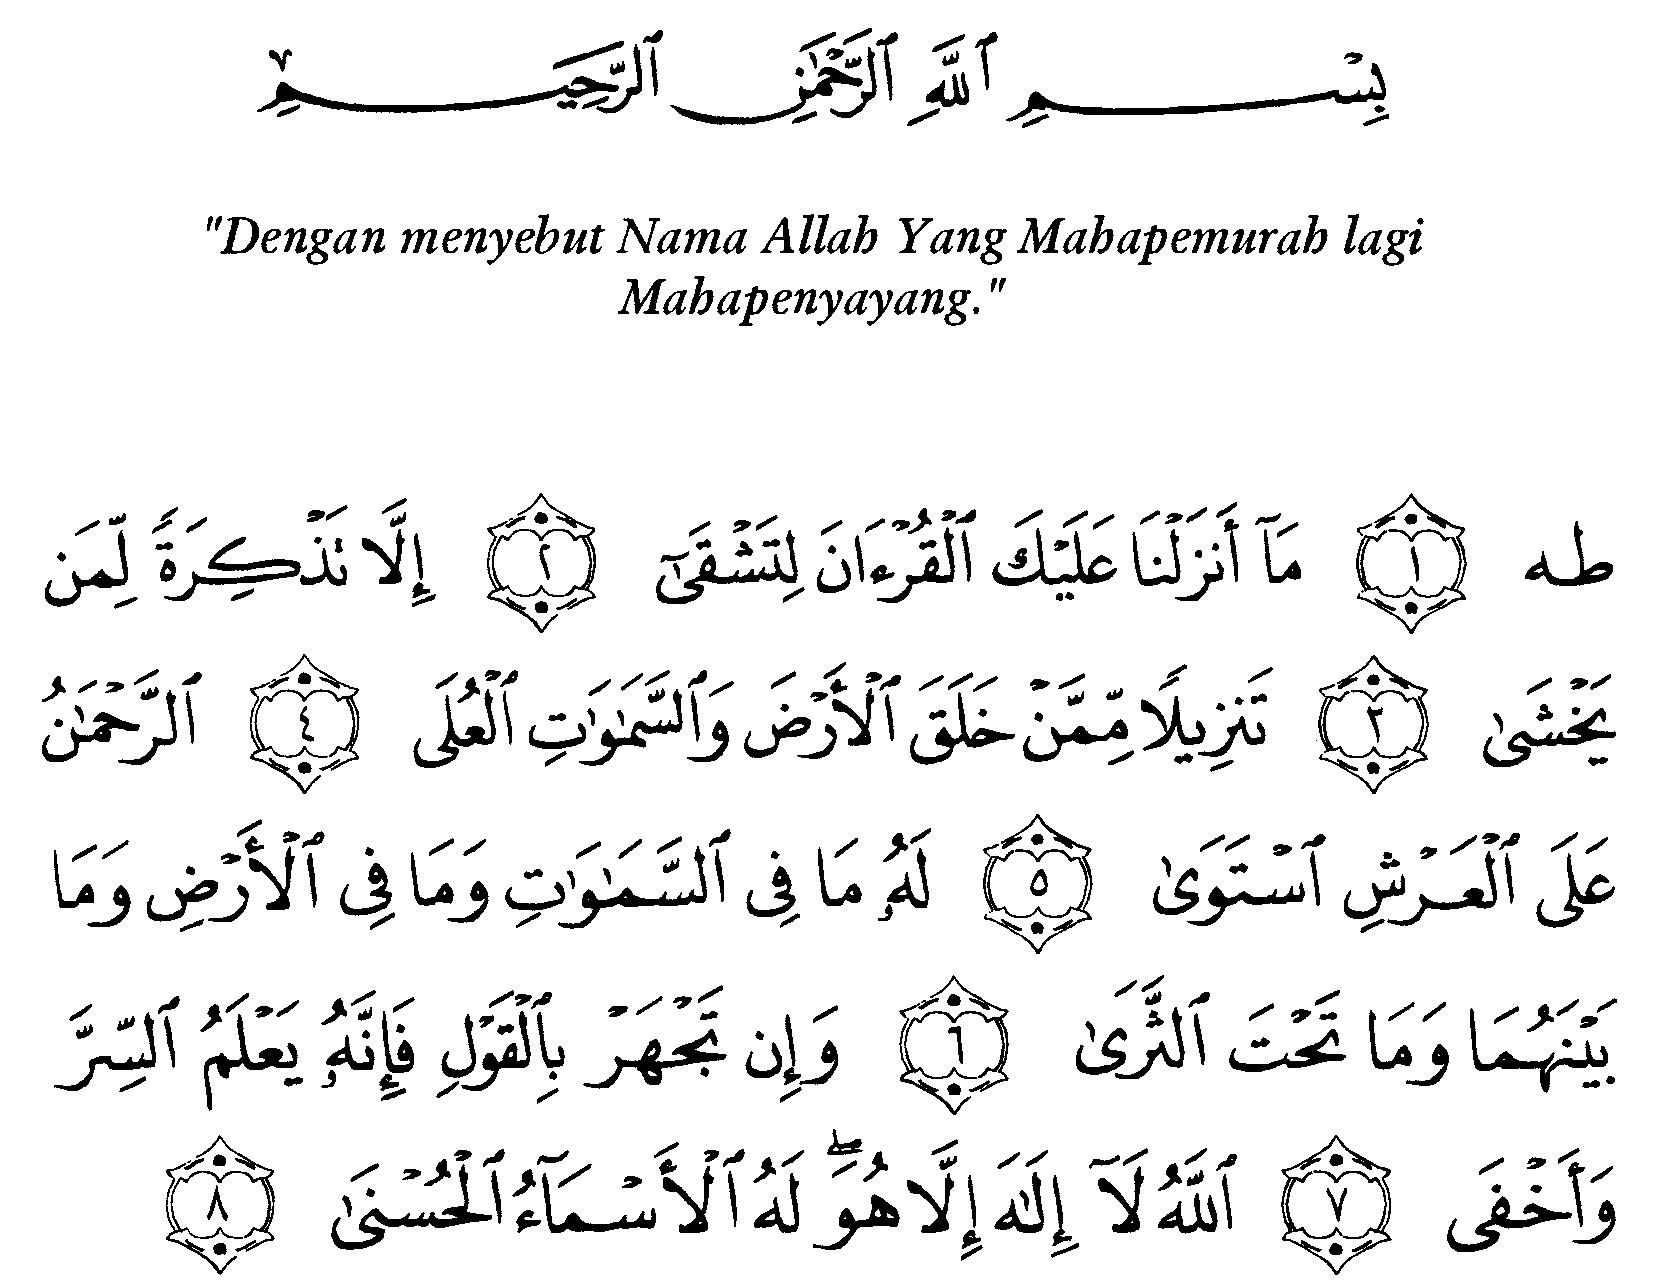 بِسْمِ ٱللَّهِ ٱلرَّحْمَٰنِ ٱلرَّحِيمِ
"Dengan menyebut Nama Allah Yang Mahapemurah lagi
Mahapenyayang."
طه ١ مَآ أَنزَلْنَا عَلَيْكَ ٱلْقُرْءَانَ لِتَشْقَىٰٓ ٢ إِلَّا تَذْكِرَةً لِّمَن
يَخْشَىٰ ٣ تَنزِيلًا مِّمَّنْ خَلَقَ ٱلْأَرْضَ وَٱلسَّمَٰوَٰتِ ٱلْعُلَى ٤ ٱلرَّحْمَٰنُ
عَلَى ٱلْعَرْشِ ٱسْتَوَىٰ ٥ لَهُۥ مَا فِى ٱلسَّمَٰوَٰتِ وَمَا فِى ٱلْأَرْضِ وَمَا
بَيْنَهُمَا وَمَا تَحْتَ ٱلثَّرَىٰ ٦ وَإِن تَجْهَرْ بِٱلْقَوْلِ فَإِنَّهُۥ يَعْلَمُ ٱلسِّرَّ
وَأَخْفَى ٧ ٱللَّهُ لَآ إِلَٰهَ إِلَّا هُوَ ۖ لَهُ ٱلْأَسْمَآءُ ٱلْحُسْنَىٰ ٨